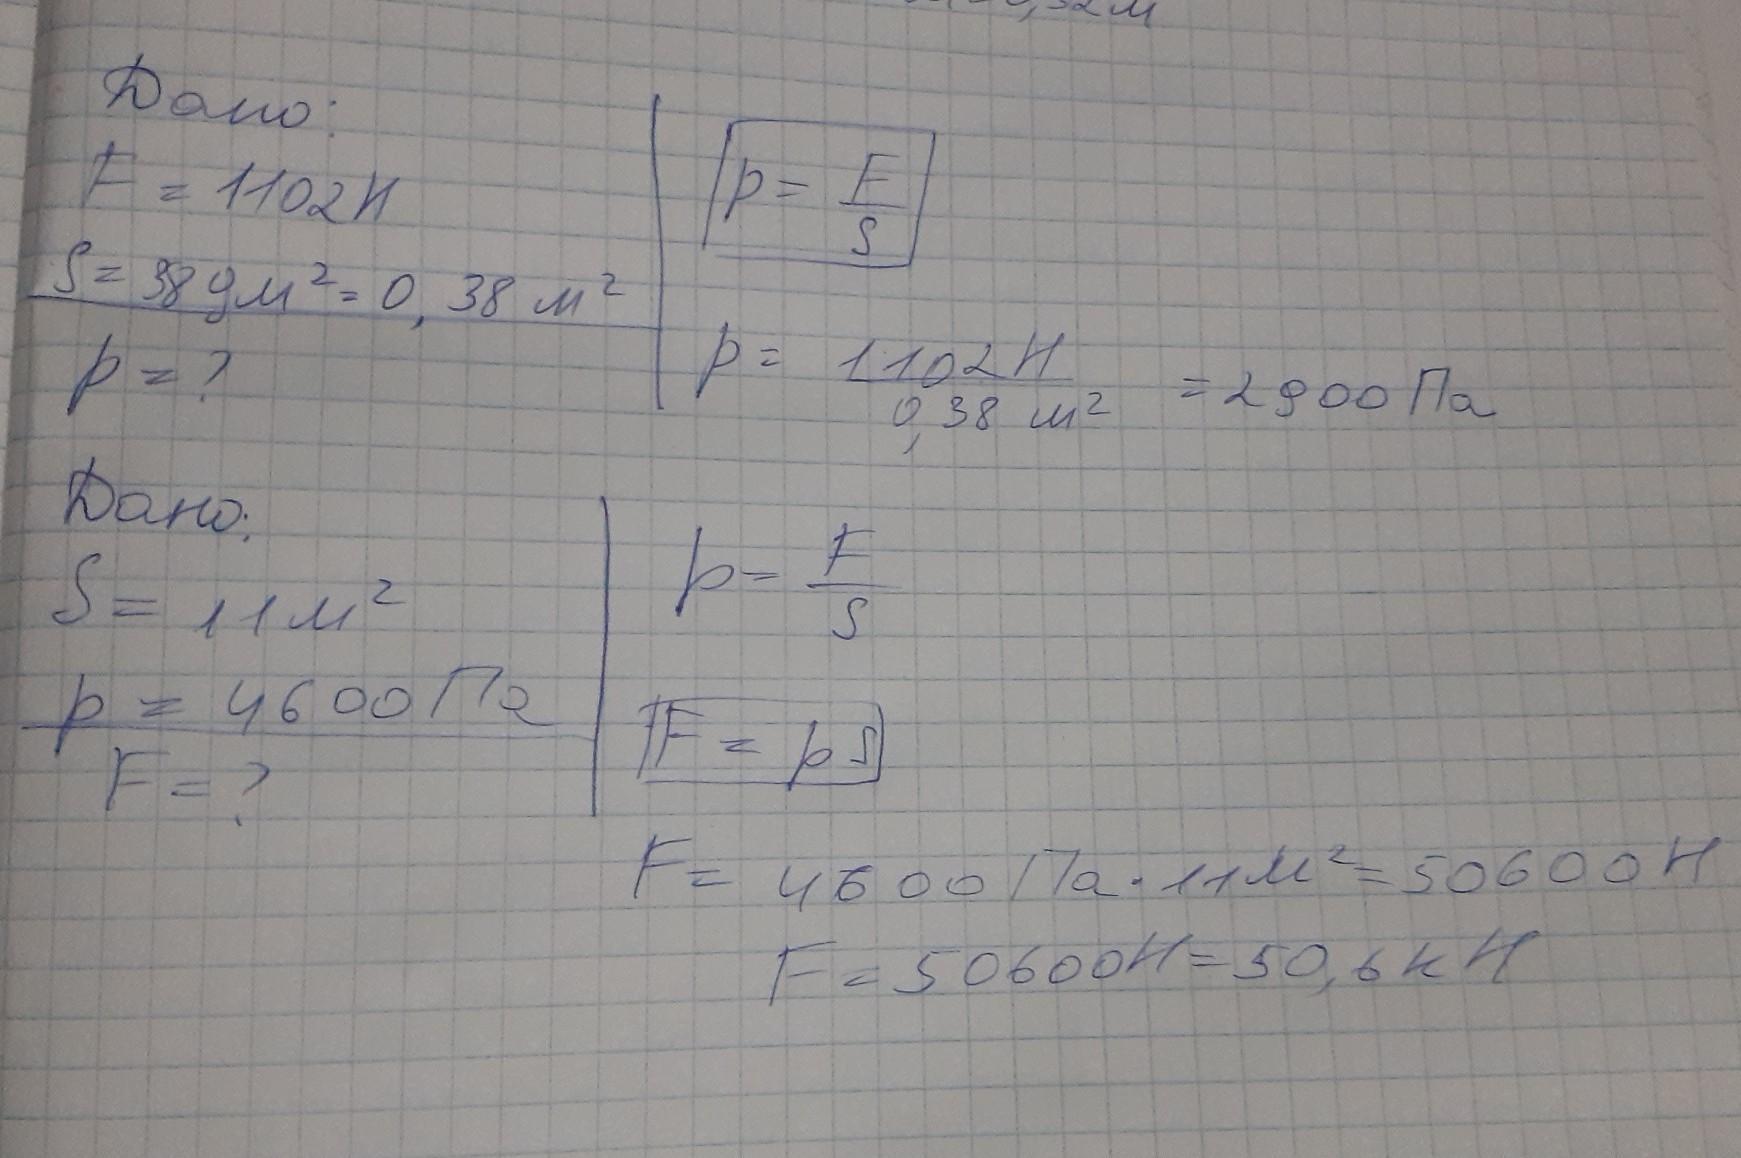 Дано:
F = 1102 Н
S = 38 дм² = 0,38 м²
p = ?
p = F/S
p = 1102 Н / 0,38 м² = 2900 Па
Дано:
S = 11 м²
p = 4600 Па
F = ?
p = F/S
F = pS
F = 4600 Па · 11 м² = 50600 Н
F = 50600 Н = 50,6 кН